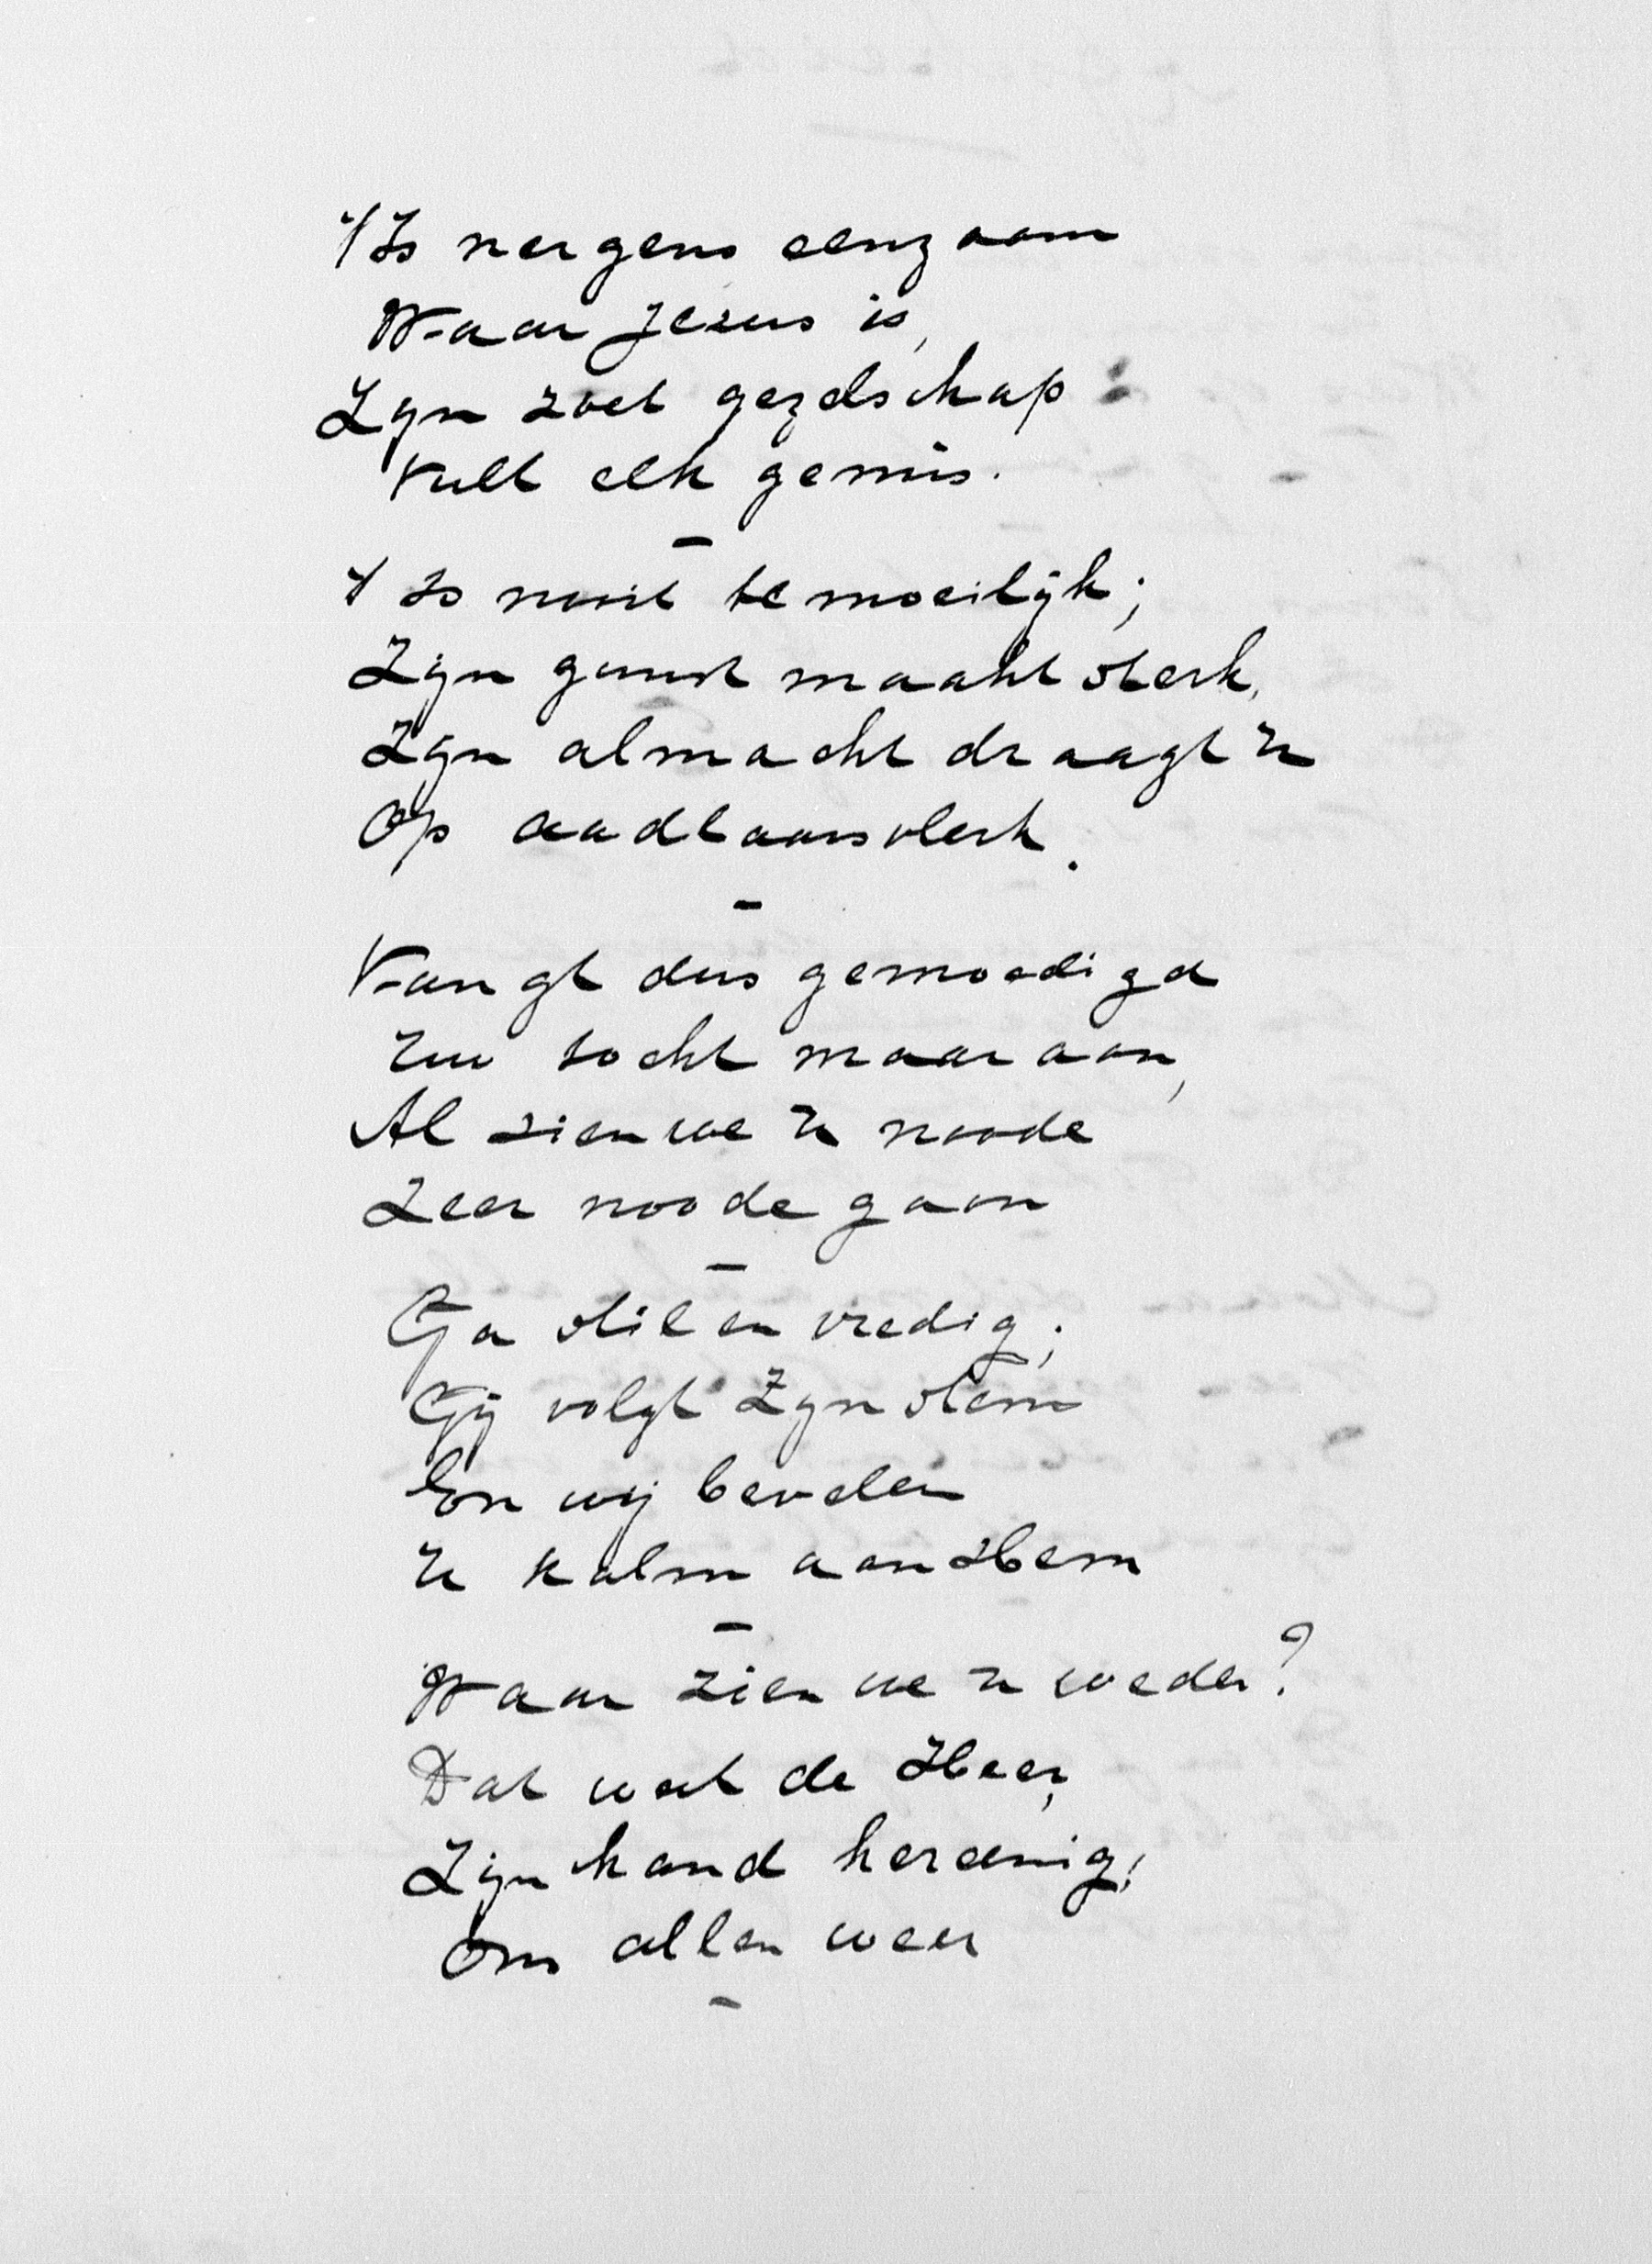 't Is nergens eenzaam
Waar Jezus is,
Zijn zoet gezelschap
Vult elk gemis.
–
't Is nooit te moeilijk;
Zijn gunst maakt sterk,
Zijn almacht draagt U
Op aadlaarsvlerk.
–
Vangt dus gemoedigd
Uw tocht maar aan,
Al zien we U noode
Zeer noode gaan
–
Ga stil en vredig;
Gij volgt Zijn stem
En wij bevelen
U kalm aan Hem
–
Waar zien we U weder?
Dat weet de Heer,
Zijn hand hereenig'
Ons allen weer
–